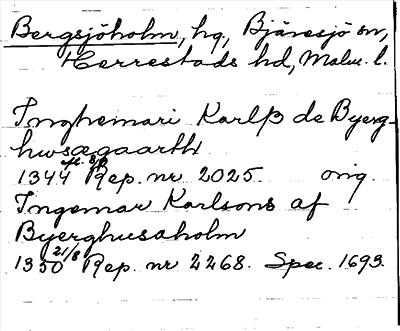 Bergsjöholm, hg, Bjäresjö sn,
Herrestads hd, Malm. l.
Inghemari Karlß de Byerg-
huusægaarth
1344 eft. 8/9 Rep. nr 2025. orig.
Ingemar Karlsons af
Byerghusaholm
1350 21/8 Rep. nr 2268. Spec. 1693.